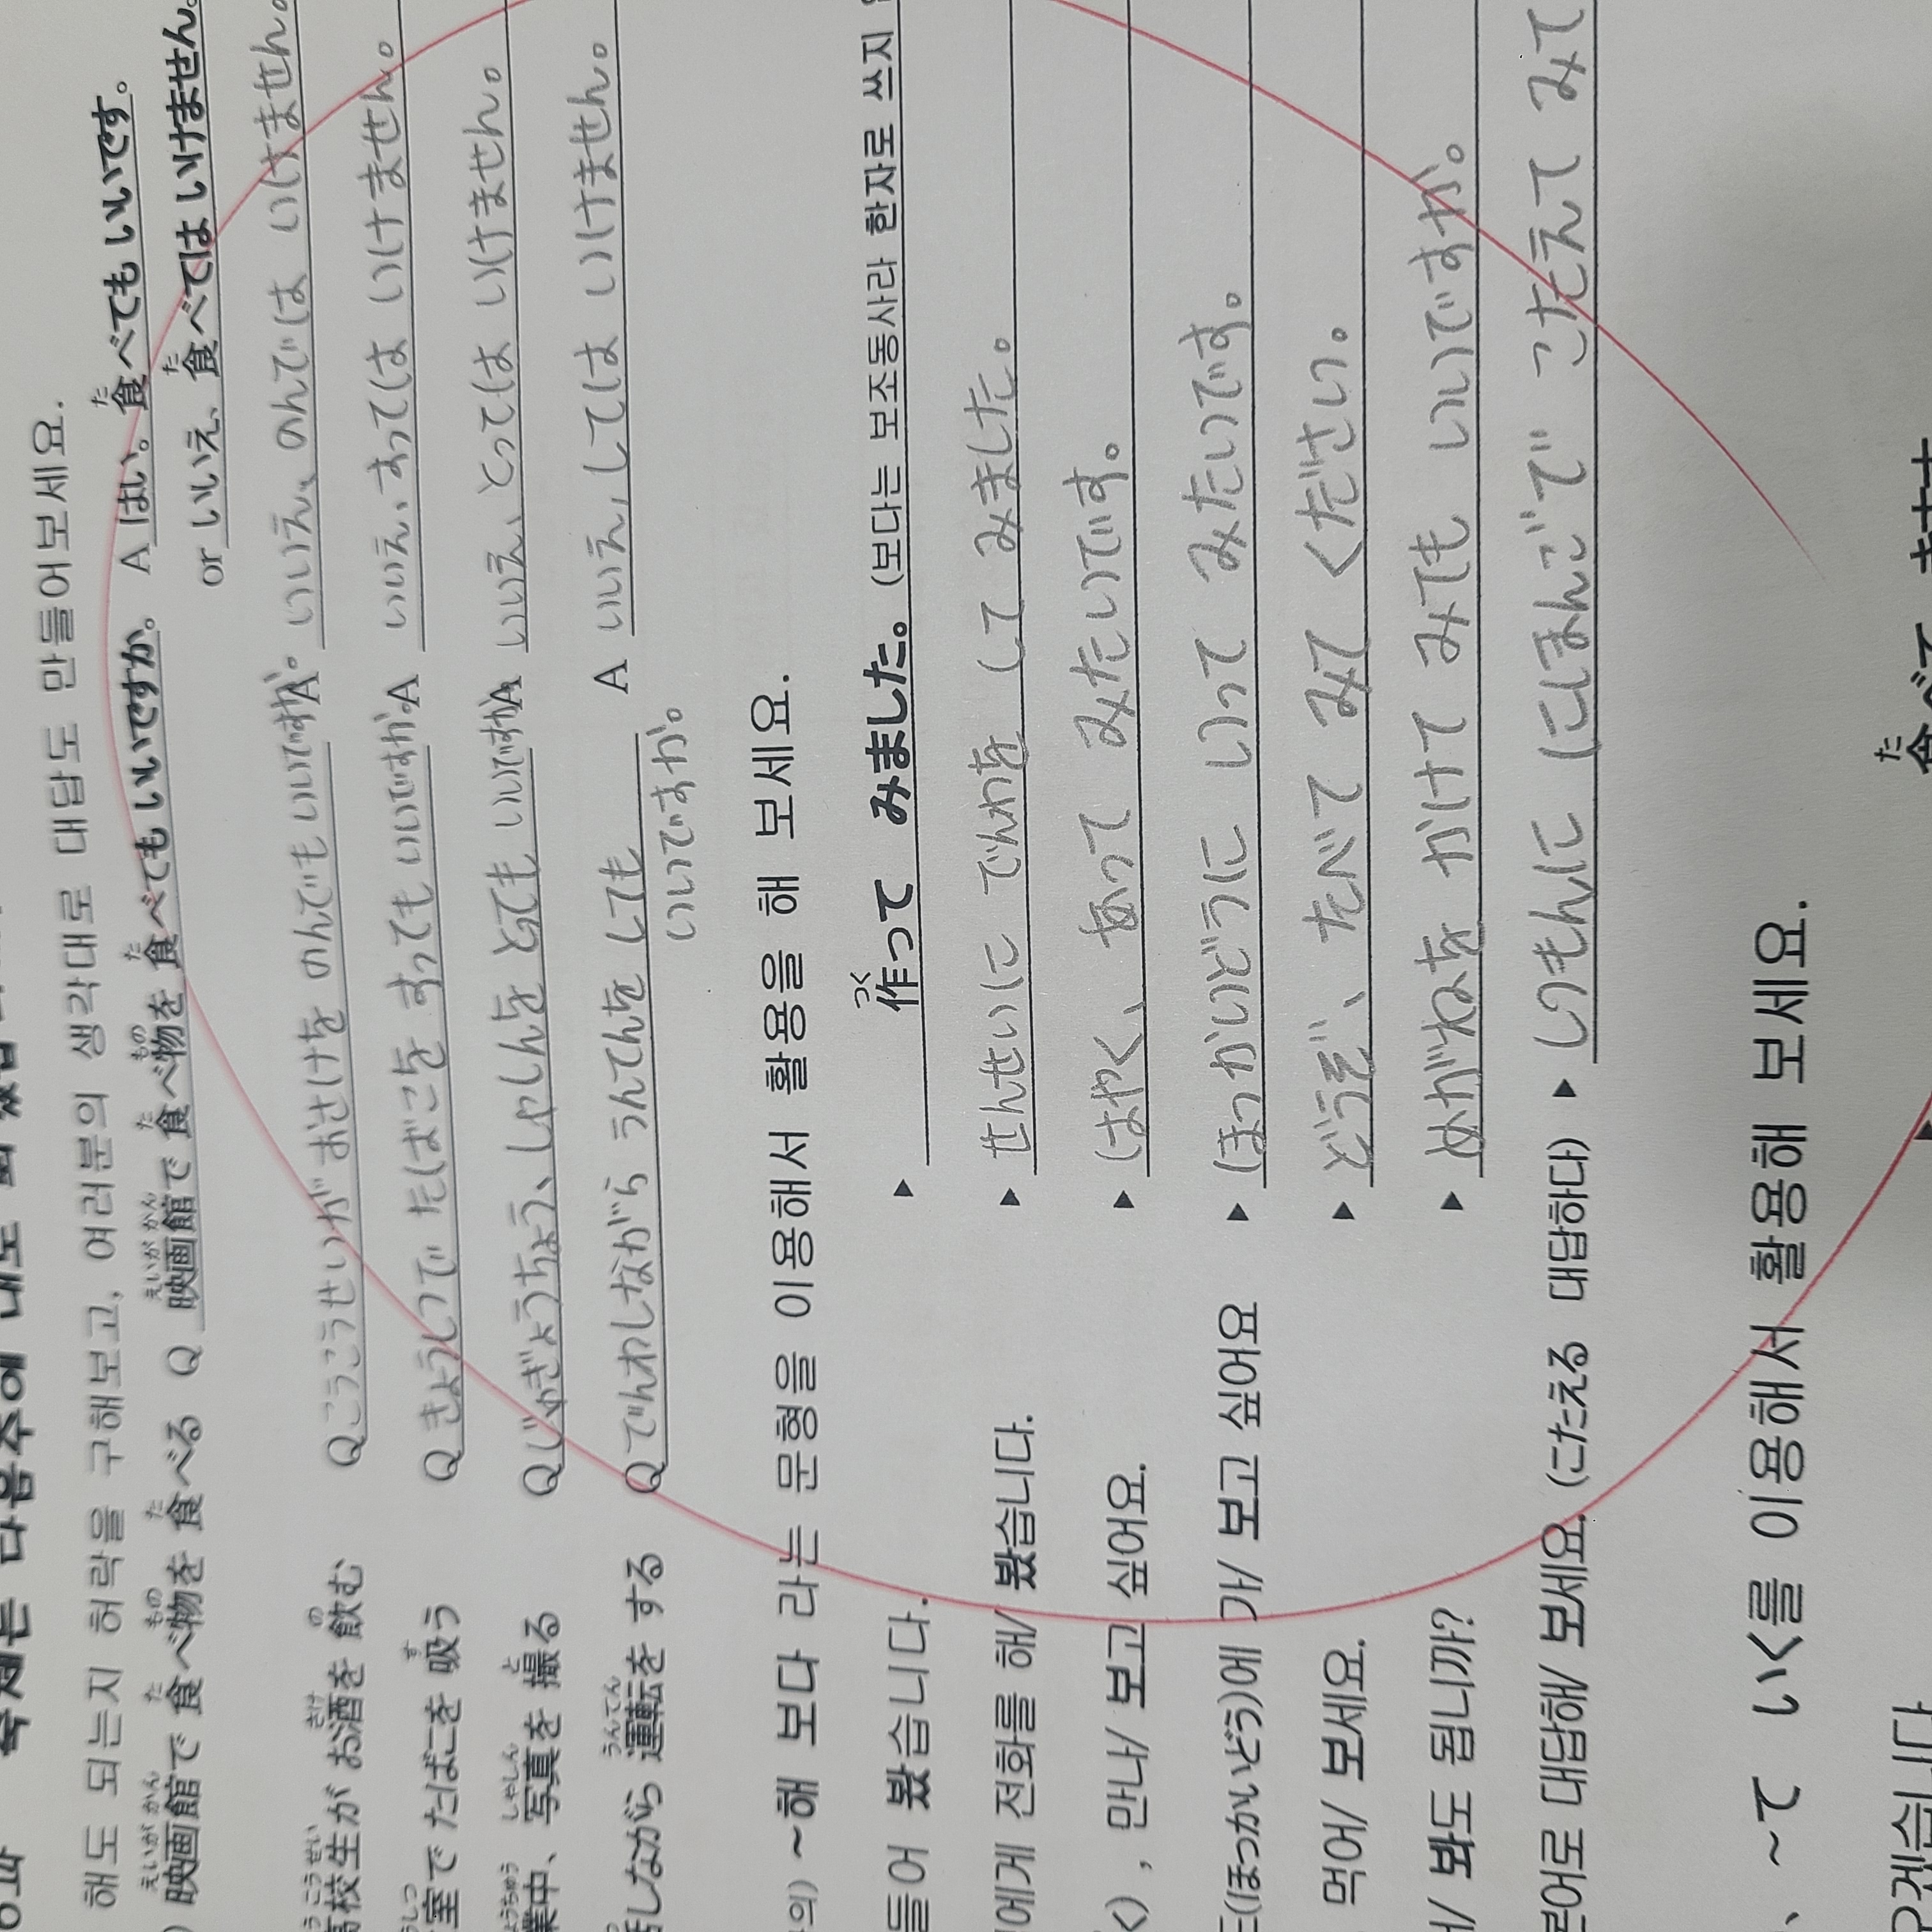 해도 되는지 허락을 구해보고, 여러분의 생각대로 대답도 만들어보세요.
映画館で 食べ物を 食べる Q 映画館で 食べ物を 食べてもいいですか。 A はい。食べてもいいです。
or いいえ、食べては いけません。
高校生が お酒を 飲む Q こうこうせいが おさけを のんでも いいですか。 A いいえ、のんでは いけません。
室で たばこを 吸う Q きょうしつで たばこを すっても いいですか A いいえ、すっては いけません。
業中、写真を 撮る Q じゅぎょうちょう、しゃしんを とっても いいですか A いいえ、とっては いけません。
話しながら 運転を する Q でんわしながら うんてんを しても いいですか。 A いいえ, しては いけません。
~해 보다 라는 문형을 이용해서 활용을 해 보세요.
들어 봤습니다. ▶ 作って みました。 (보다는 보조동사라 한자로 쓰지
에게 전화를 해/ 봤습니다. ▶ せんせいに でんわを して みました。
, 만나/ 보고 싶어요. ▶ はやく、あって みたいです。
(ほっかいどう)에 가/ 보고 싶어요 ▶ ほっかいどうに いって みたいです。
먹어/ 보세요. ▶ どうぞ、たべて みて ください。
봐도 됩니까? ▶ めがねを かけて みても いいですか。
본어로 대답해/ 보세요. (こたえる 대답하다) ▶ しつもんに にほんごで こたえて みて
~て いく를 이용해서 활용해 보세요.
오겠습니다 ▶ 食べて